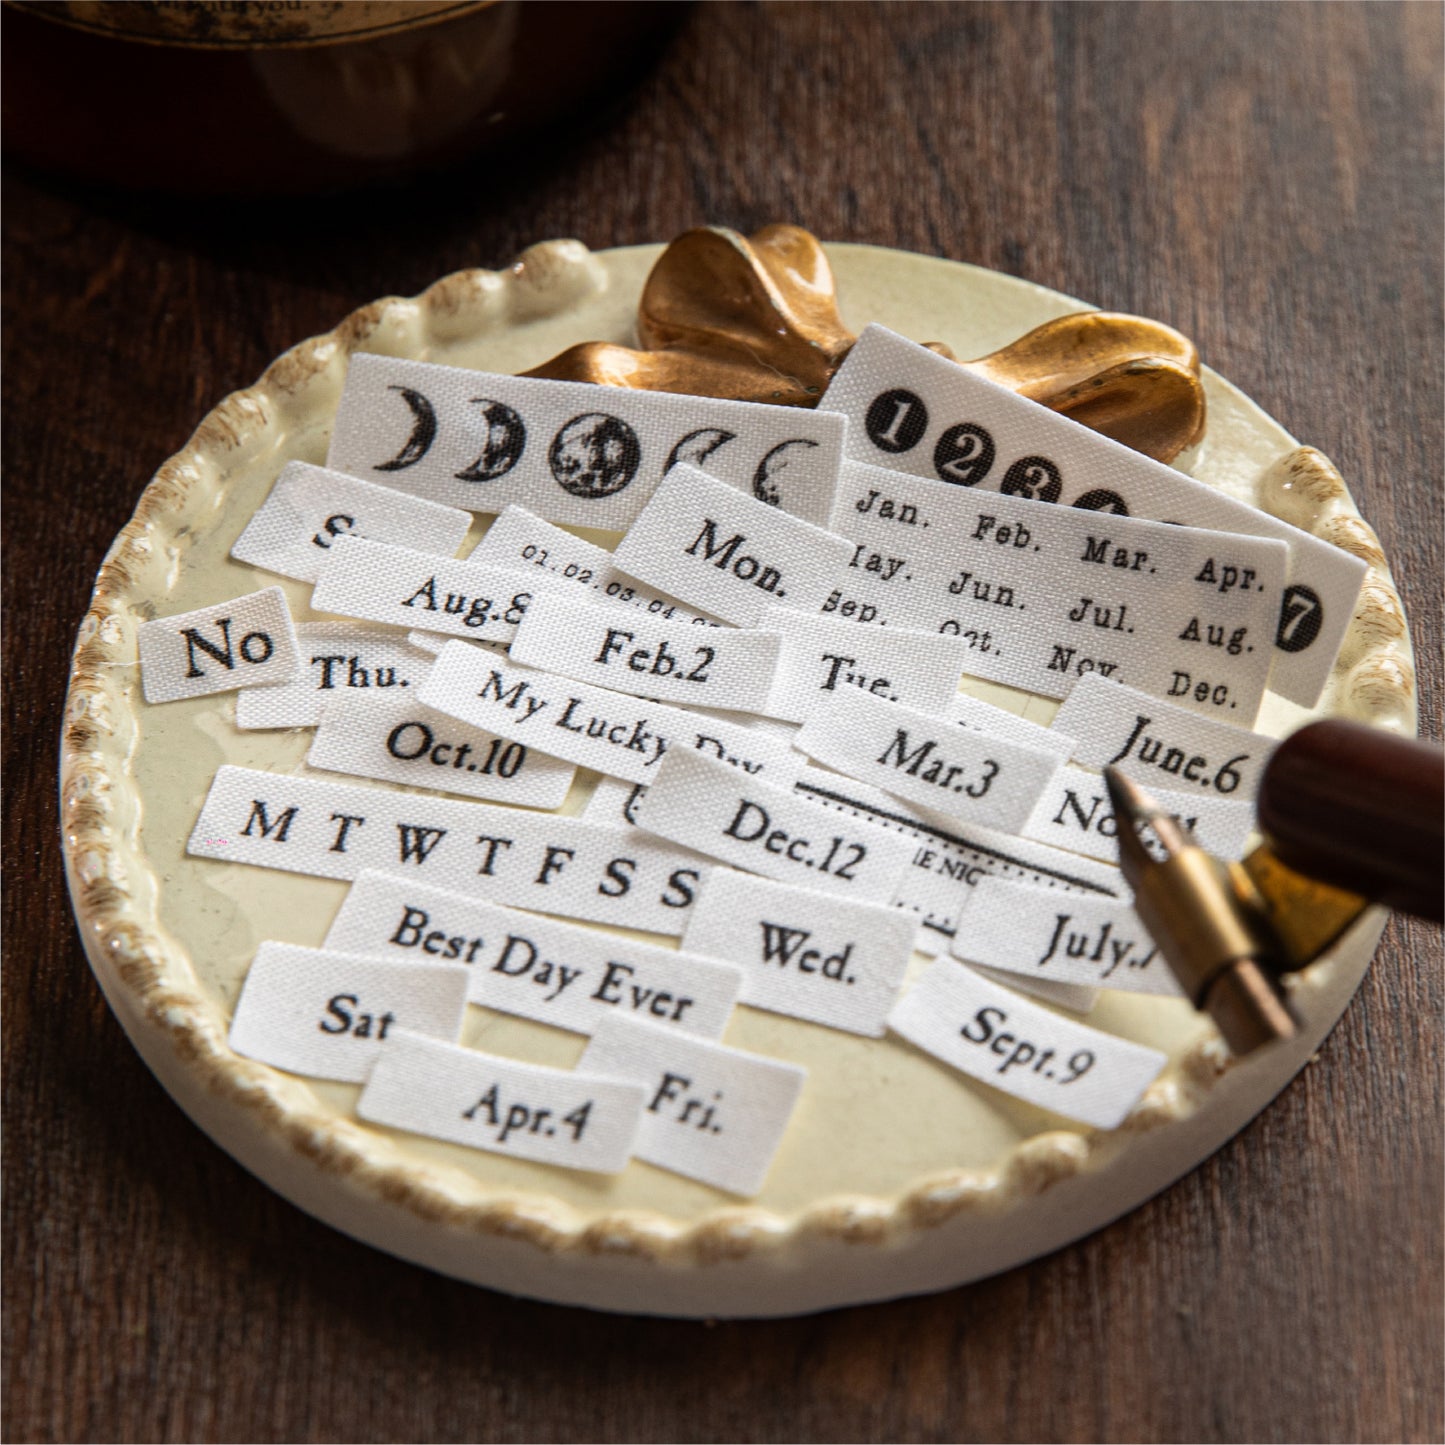 with you.
1 2 3 4
7
Jan. Feb. Mar. Apr.
Jun. Jul. Aug.
Sep. Oct. Nov. Dec.
Mon.
01.02.03.04
Aug.8
No
Thu.
Feb.2
Tue.
My Lucky Day
Oct.10
Mar.3
June.6
Dec.12
M T W T F S S
July.7
Best Day Ever
Wed.
Sat
Sept.9
Apr.4
Fri.